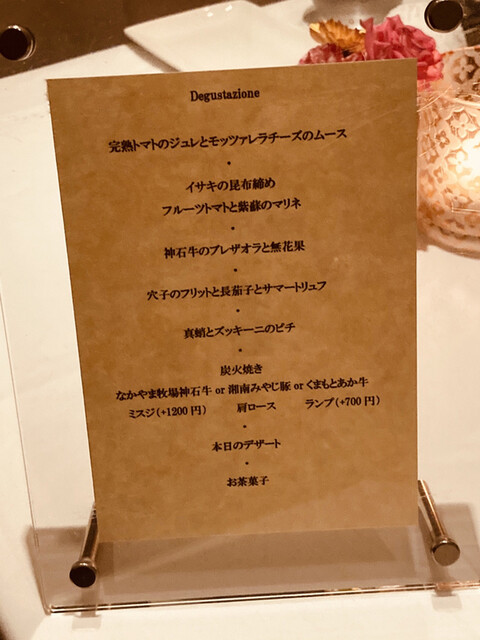 Degustazione
完熟トマトのジュレとモッツァレラチーズのムース
*
イサキの昆布締め
フルーツトマトと紫蘇のマリネ
*
神石牛のブレザオラと無花果
*
穴子のフリットと長茄子とサマートリュフ
*
真蛸とズッキーニのピチ
*
炭火焼き
なかやま牧場神石牛 or 湘南みやじ豚 or くまもとあか牛
ミスジ(+1200円) 肩ロース ランプ(+700円)
*
本日のデザート
*
お茶菓子